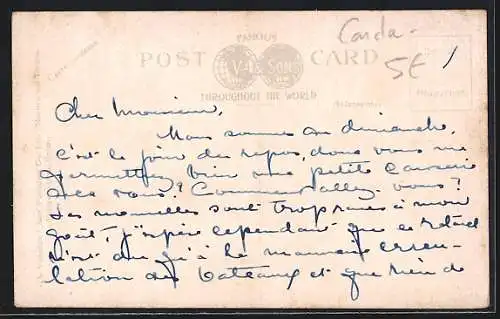 Carda -
5€ /
FAMOUS
POST CARD
V.A & SONS
THROUGHOUT THE WORLD
Cher Monsieur,
Nous sommes au dimanche,
c'est le jour du repos, donc vous me
permettez bien une petite causerie
avec vous? Comment allez-vous?
Les nouvelles sont trop rares à mon
goût, j'espère cependant que ce retard
n'est dû qu'à la mauvaise circu-
lation des bateaux et que rien de